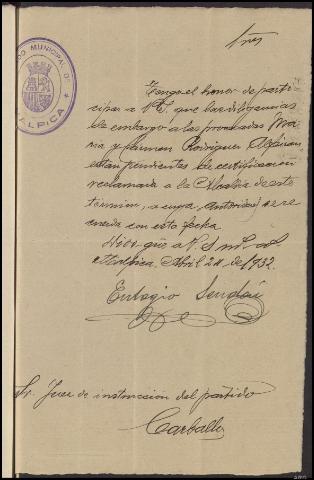 tres
JUZGADO MUNICIPAL DE
MALPICA
Tengo el honor de parti-
cipar a V.S. que las diligencias
de embargo a las procesadas Ma-
ria y Carmen Rodriguez
estan pendientes de certificación
reclamada a la Alcaldia de este
termino, a cuya autoridad se re-
cuerda con esta fecha
Dios que a V.S. m. a.
Malpica, Abril 21 de 1932.
Eulogio
Sr. Juez de instrucción del partido
Carballo